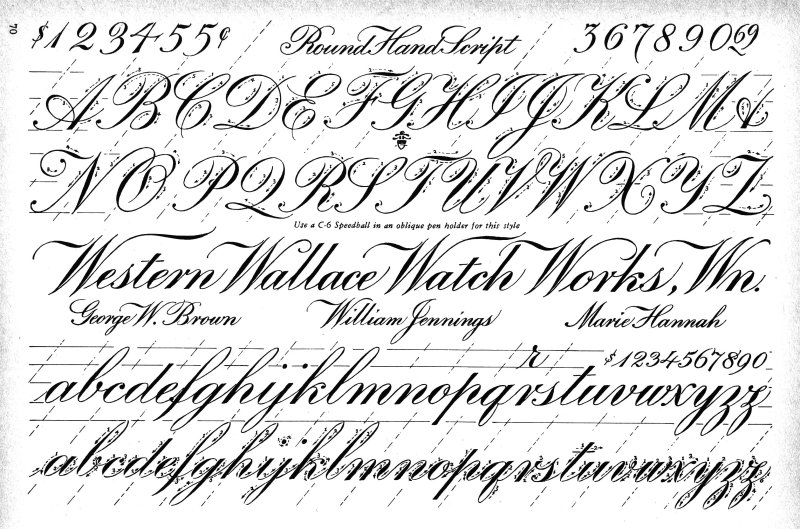 70
$1 2 3 4 5 5¢ Round Hand Script 3 6 7 8 9 0 69
A B C D E F G H I J K L M &
N O P Q R S T U V W X Y Z
Use a C-6 Speedball in an oblique pen holder for this style
Western Wallace Watch Works, Wn.
George W. Brown William Jennings Marie Hannah
r $1234567890
abcdefghijklmnopqrstuvwxyzz
abcdefghijklmnopqrstuvwxyzz